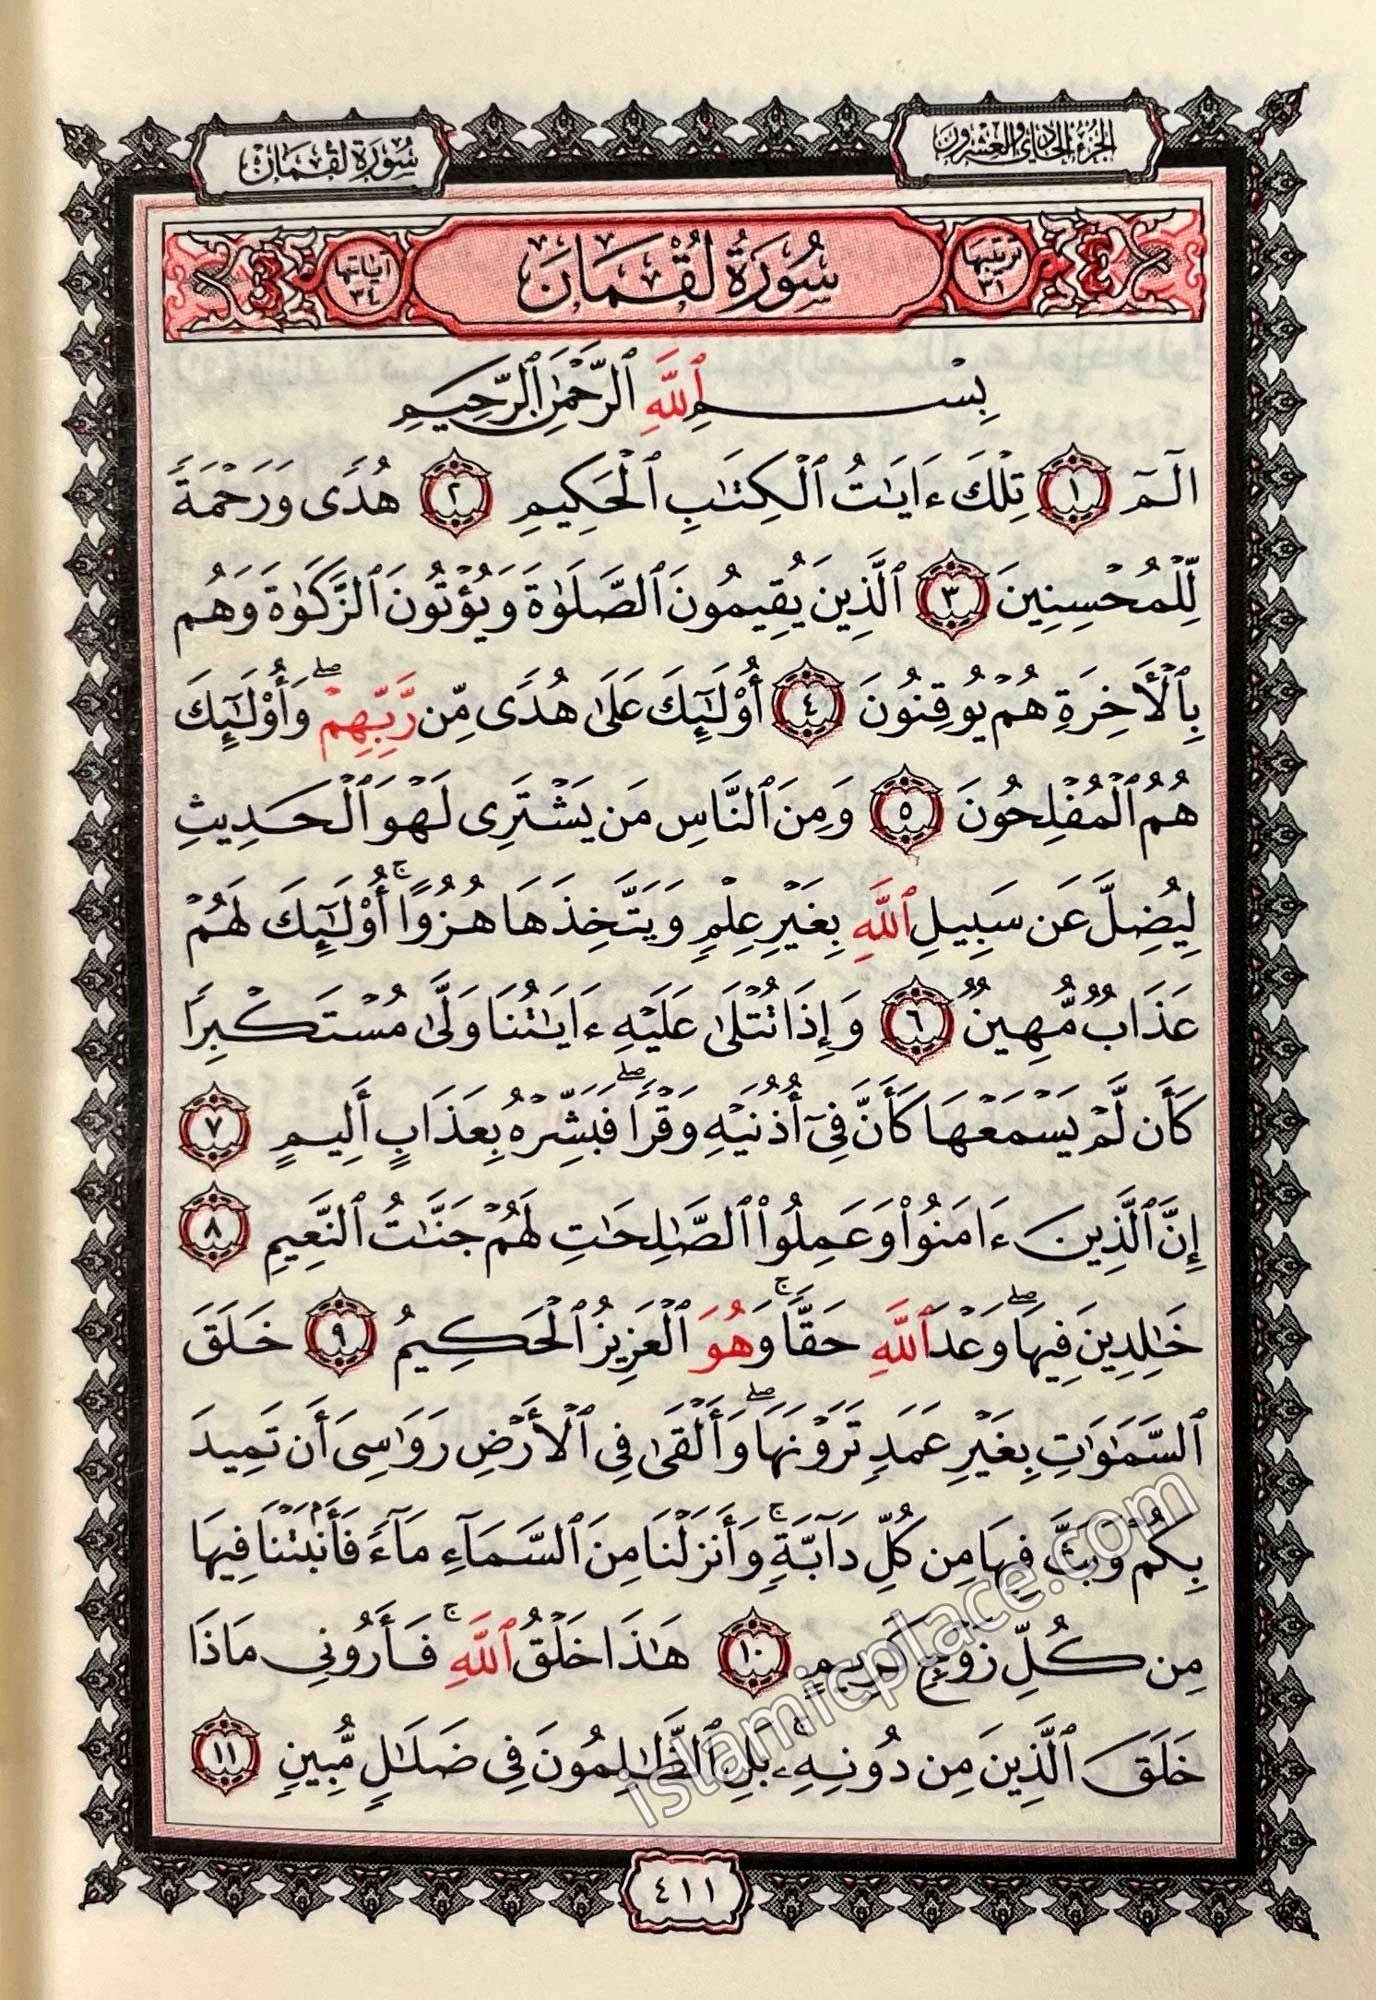 الجزء الحادي والعشرون
سورة لقمان
ترتيبها ٣١
سُورَةُ لُقْمَانَ
آياتها ٣٤
بِسْمِ ٱللَّهِ ٱلرَّحْمَٰنِ ٱلرَّحِيمِ
الٓمٓ ١ تِلْكَ ءَايَٰتُ ٱلْكِتَٰبِ ٱلْحَكِيمِ ٢ هُدًى وَرَحْمَةً
لِّلْمُحْسِنِينَ ٣ ٱلَّذِينَ يُقِيمُونَ ٱلصَّلَوٰةَ وَيُؤْتُونَ ٱلزَّكَوٰةَ وَهُم
بِٱلْأَخِرَةِ هُمْ يُوقِنُونَ ٤ أُو۟لَٰٓئِكَ عَلَىٰ هُدًى مِّن رَّبِّهِمْ ۖ وَأُو۟لَٰٓئِكَ
هُمُ ٱلْمُفْلِحُونَ ٥ وَمِنَ ٱلنَّاسِ مَن يَشْتَرِى لَهْوَ ٱلْحَدِيثِ
لِيُضِلَّ عَن سَبِيلِ ٱللَّهِ بِغَيْرِ عِلْمٍ وَيَتَّخِذَهَا هُزُوًا ۚ أُو۟لَٰٓئِكَ لَهُمْ
عَذَابٌ مُّهِينٌ ٦ وَإِذَا تُتْلَىٰ عَلَيْهِ ءَايَٰتُنَا وَلَّىٰ مُسْتَكْبِرًا
كَأَن لَّمْ يَسْمَعْهَا كَأَنَّ فِىٓ أُذُنَيْهِ وَقْرًا ۖ فَبَشِّرْهُ بِعَذَابٍ أَلِيمٍ ٧
إِنَّ ٱلَّذِينَ ءَامَنُوا۟ وَعَمِلُوا۟ ٱلصَّٰلِحَٰتِ لَهُمْ جَنَّٰتُ ٱلنَّعِيمِ ٨
خَٰلِدِينَ فِيهَا ۖ وَعْدَ ٱللَّهِ حَقًّا ۚ وَهُوَ ٱلْعَزِيزُ ٱلْحَكِيمُ ٩ خَلَقَ
ٱلسَّمَٰوَٰتِ بِغَيْرِ عَمَدٍ تَرَوْنَهَا ۖ وَأَلْقَىٰ فِى ٱلْأَرْضِ رَوَٰسِىَ أَن تَمِيدَ
بِكُمْ وَبَثَّ فِيهَا مِن كُلِّ دَآبَّةٍ ۚ وَأَنزَلْنَا مِنَ ٱلسَّمَآءِ مَآءً فَأَنۢبَتْنَا فِيهَا
مِن كُلِّ زَوْجٍ كَرِيمٍ ١٠ هَٰذَا خَلْقُ ٱللَّهِ ۚ فَأَرُونِى مَاذَا
خَلَقَ ٱلَّذِينَ مِن دُونِهِۦ ۚ بَلِ ٱلظَّٰلِمُونَ فِى ضَلَٰلٍ مُّبِينٍ ١١
٤١١
islamicplace.com